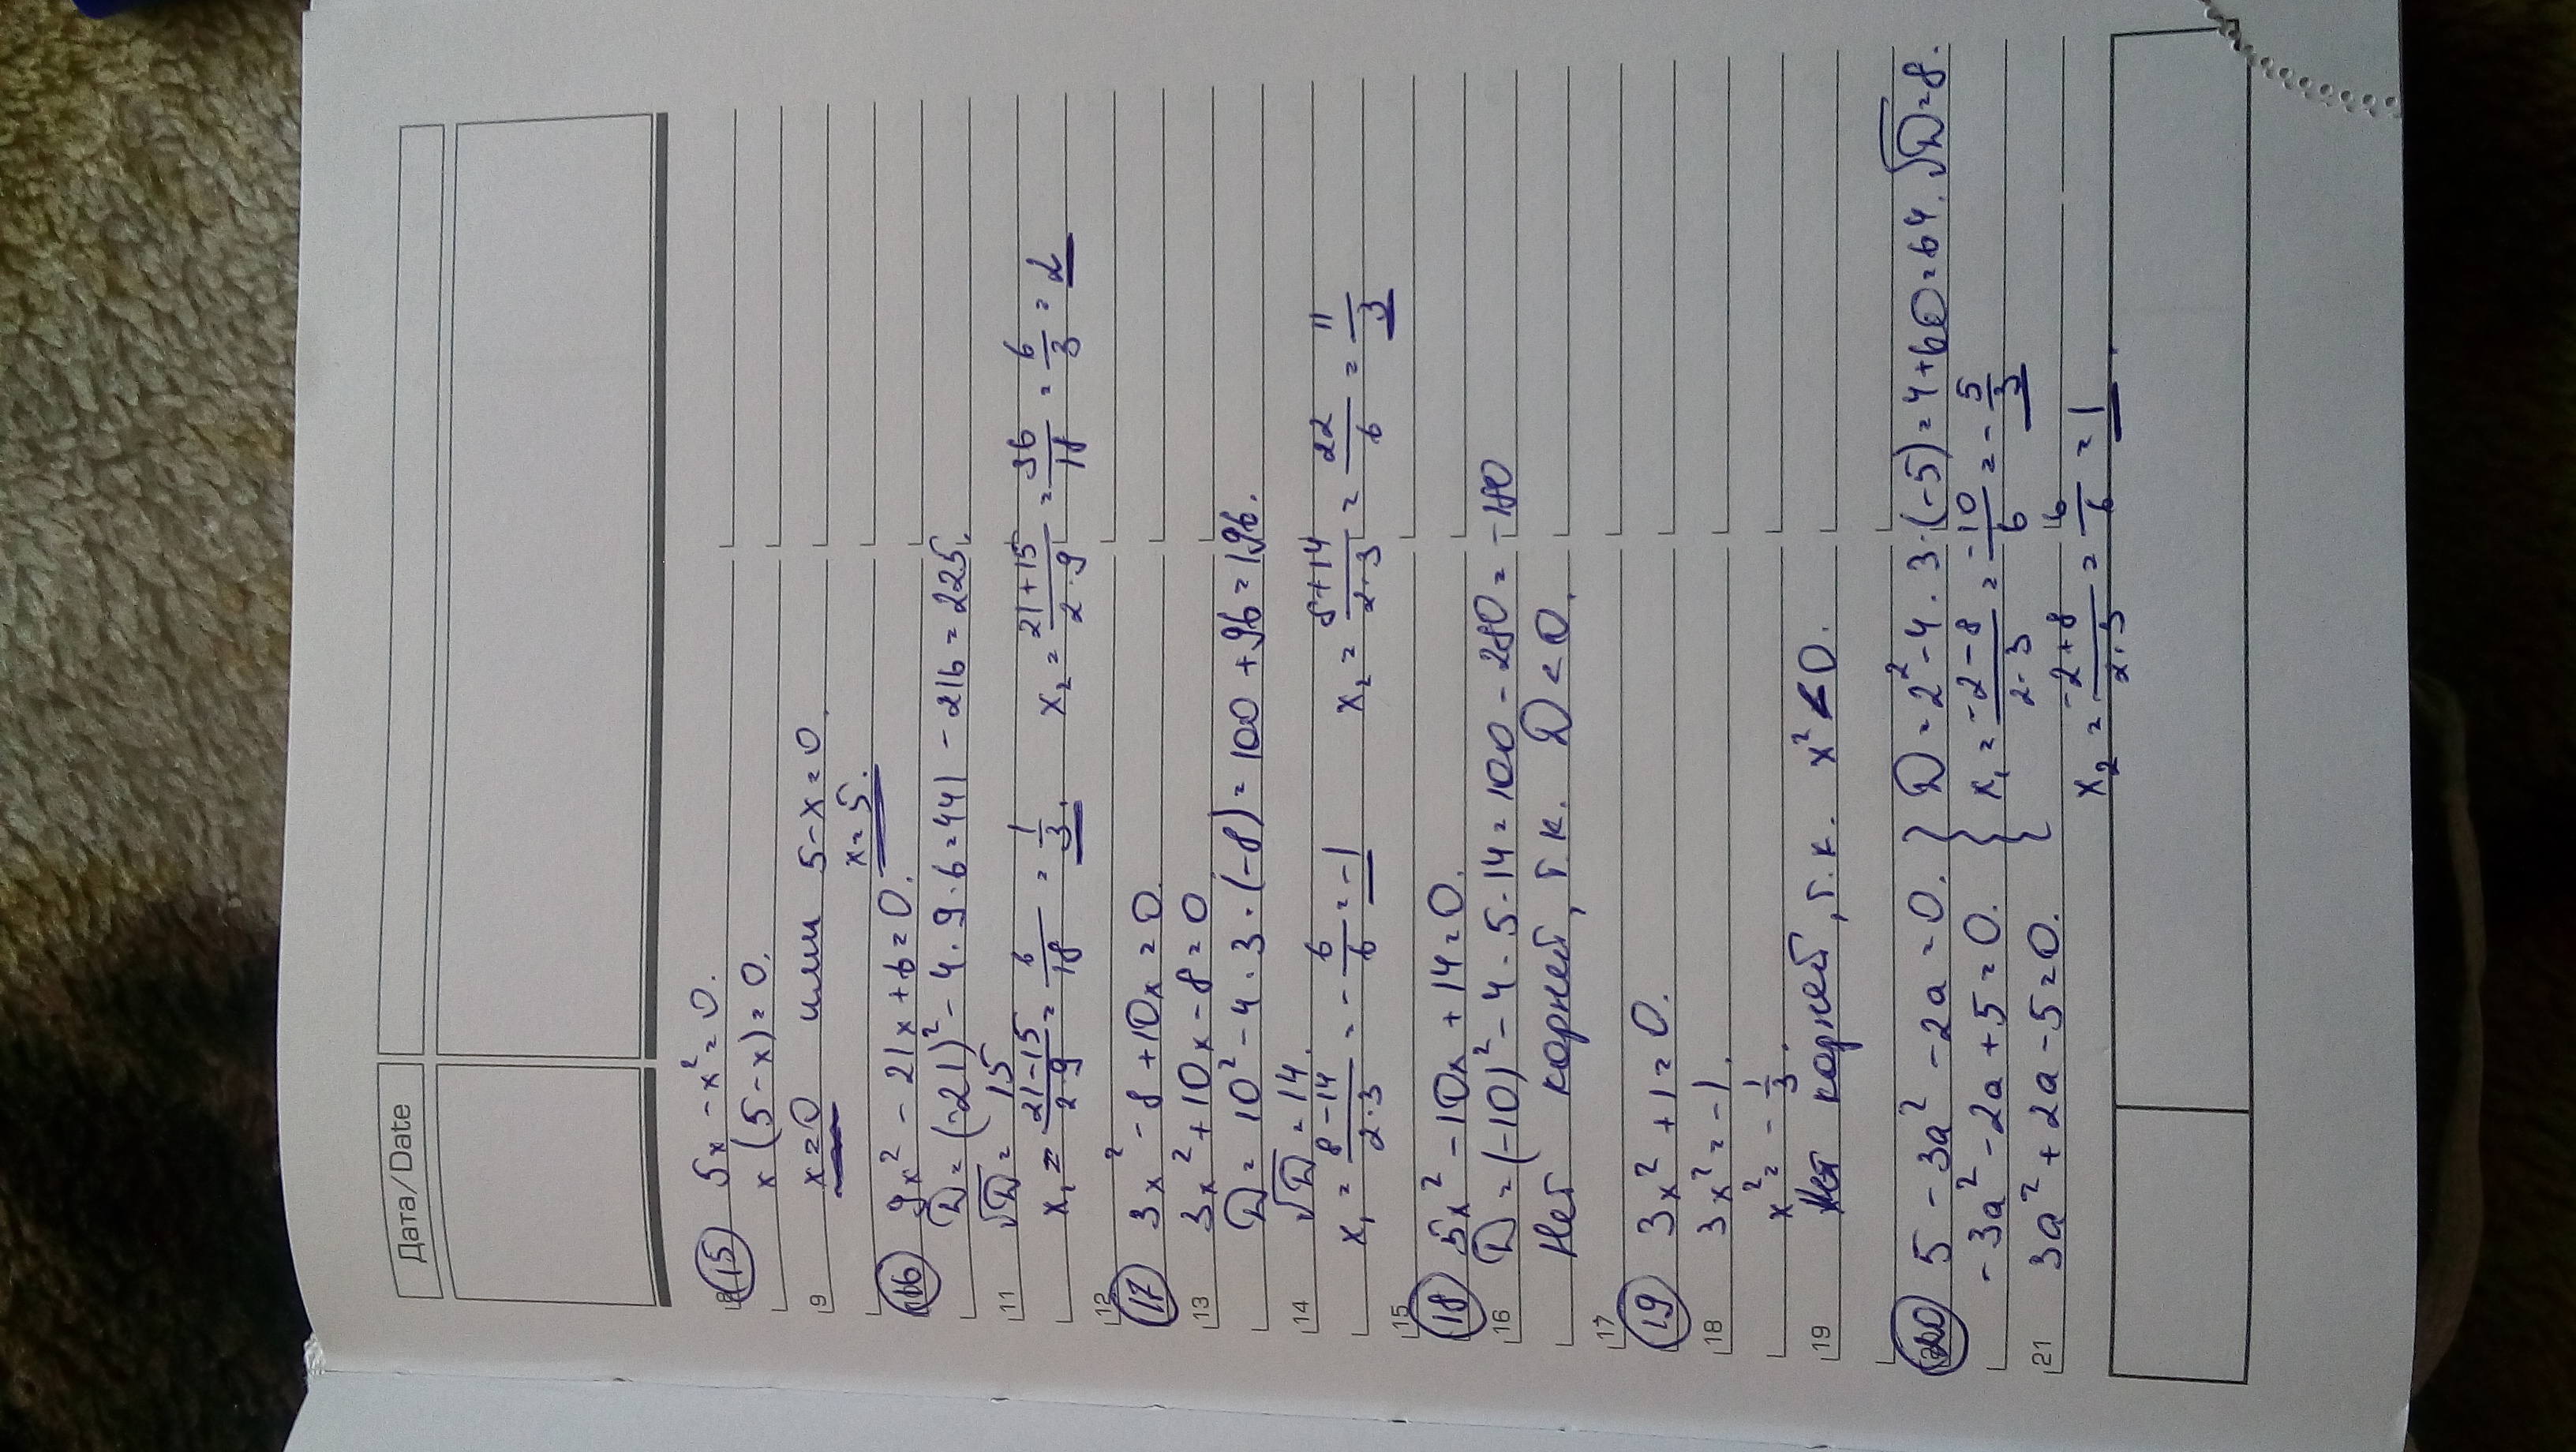 Дата/Date
8 (15) 5x - x² = 0.
x(5-x) = 0.
9 x=0 или 5-x=0.
x=5.
(16) 9x² - 21x + 6 = 0.
D = (-21)² - 4·9·6 = 441 - 216 = 225.
11 √D = 15
x₁ = (21-15)/(2·9) = 6/18 = 1/3. x₂ = (21+15)/(2·9) = 36/18 = 6/3 = 2
12 (17) 3x² - 8 + 10x = 0.
13 3x² + 10x - 8 = 0
D = 10² - 4·3·(-8) = 100 + 96 = 196.
14 √D = 14.
x₁ = (8-14)/(2·3) = -6/6 = -1 x₂ = (8+14)/(2·3) = 22/6 = 11/3
15 (18) 5x² - 10x + 14 = 0.
16 D = (-10)² - 4·5·14 = 100 - 280 = -180
Нет корней, т.к. D < 0.
17 (19) 3x² + 1 = 0.
18 3x² = -1.
x² = -1/3.
19 Нет корней, т.к. x² < 0.
(20) 5 - 3a² - 2a = 0. } D = 2² - 4·3·(-5) = 4 + 60 = 64. √D = 8.
-3a² - 2a + 5 = 0. } x₁ = (-2-8)/(2·3) = -10/6 = -5/3
21 3a² + 2a - 5 = 0. }
x₂ = (-2+8)/(2·3) = 6/6 = 1.